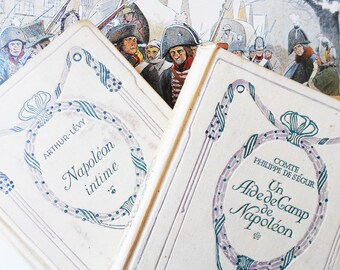 ARTHUR-LÉVY
Napoléon
intime
COMTE
PHILIPPE DE SÉGUR
Un
Aide de Camp
de
Napoléon